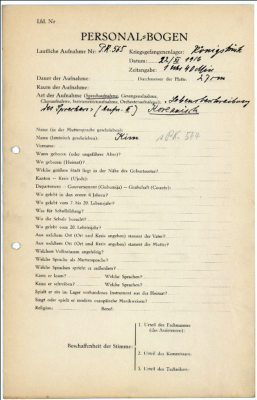 Lfd. Nr
PERSONAL-BOGEN
Lautliche Aufnahme Nr: PK 525 Kriegsgefangenenlager: Königsbrück
Datum: 1916
Zeitangabe: 1 Uhr 40 Min
Dauer der Aufnahme: Durchmesser der Platte: 27 cm
Raum der Aufnahme:
Art der Aufnahme (Sprechaufnahme, Gesangsaufnahme,
Choraufnahme, Instrumentenaufnahme, Orchesteraufnahme): Lebensbeschreibung
des Sprechers (Aufn. ) Koreanisch
Name (in der Muttersprache geschrieben):
Name (lateinisch geschrieben): Kim
Vorname:
Wann geboren (oder ungefähres Alter)?
Wo geboren (Heimat)?
Welche größere Stadt liegt in der Nähe des Geburtsortes?
Kanton — Kreis (Ujedz):
Departement — Gouvernement (Gubernija) — Grafschaft (County):
Wo gelebt in den ersten 6 Jahren?
Wo gelebt vom 7 bis 20 Lebensjahr?
Was für Schulbildung?
Wo die Schule besucht?
Wo gelebt vom 20. Lebensjahr?
Aus welchem Ort (Ort und Kreis angeben) stammt der Vater?
Aus welchem Ort (Ort und Kreis angeben) stammt die Mutter?
Welchem Volksstamm angehörig?
Welche Sprache als Muttersprache?
Welche Sprachen spricht er außerdem?
Kann er lesen? Welche Sprachen?
Kann er schreiben? Welche Sprachen?
Spielt er ein im Lager vorhandenes Instrument aus der Heimat?
Singt oder spielt er modern europäische Musikweisen?
Religion: Beruf:
Beschaffenheit der Stimme:
1. Urteil des Fachmannes
(des Assistenten):
2. Urteil des Kommissars:
3. Urteil des Technikers: